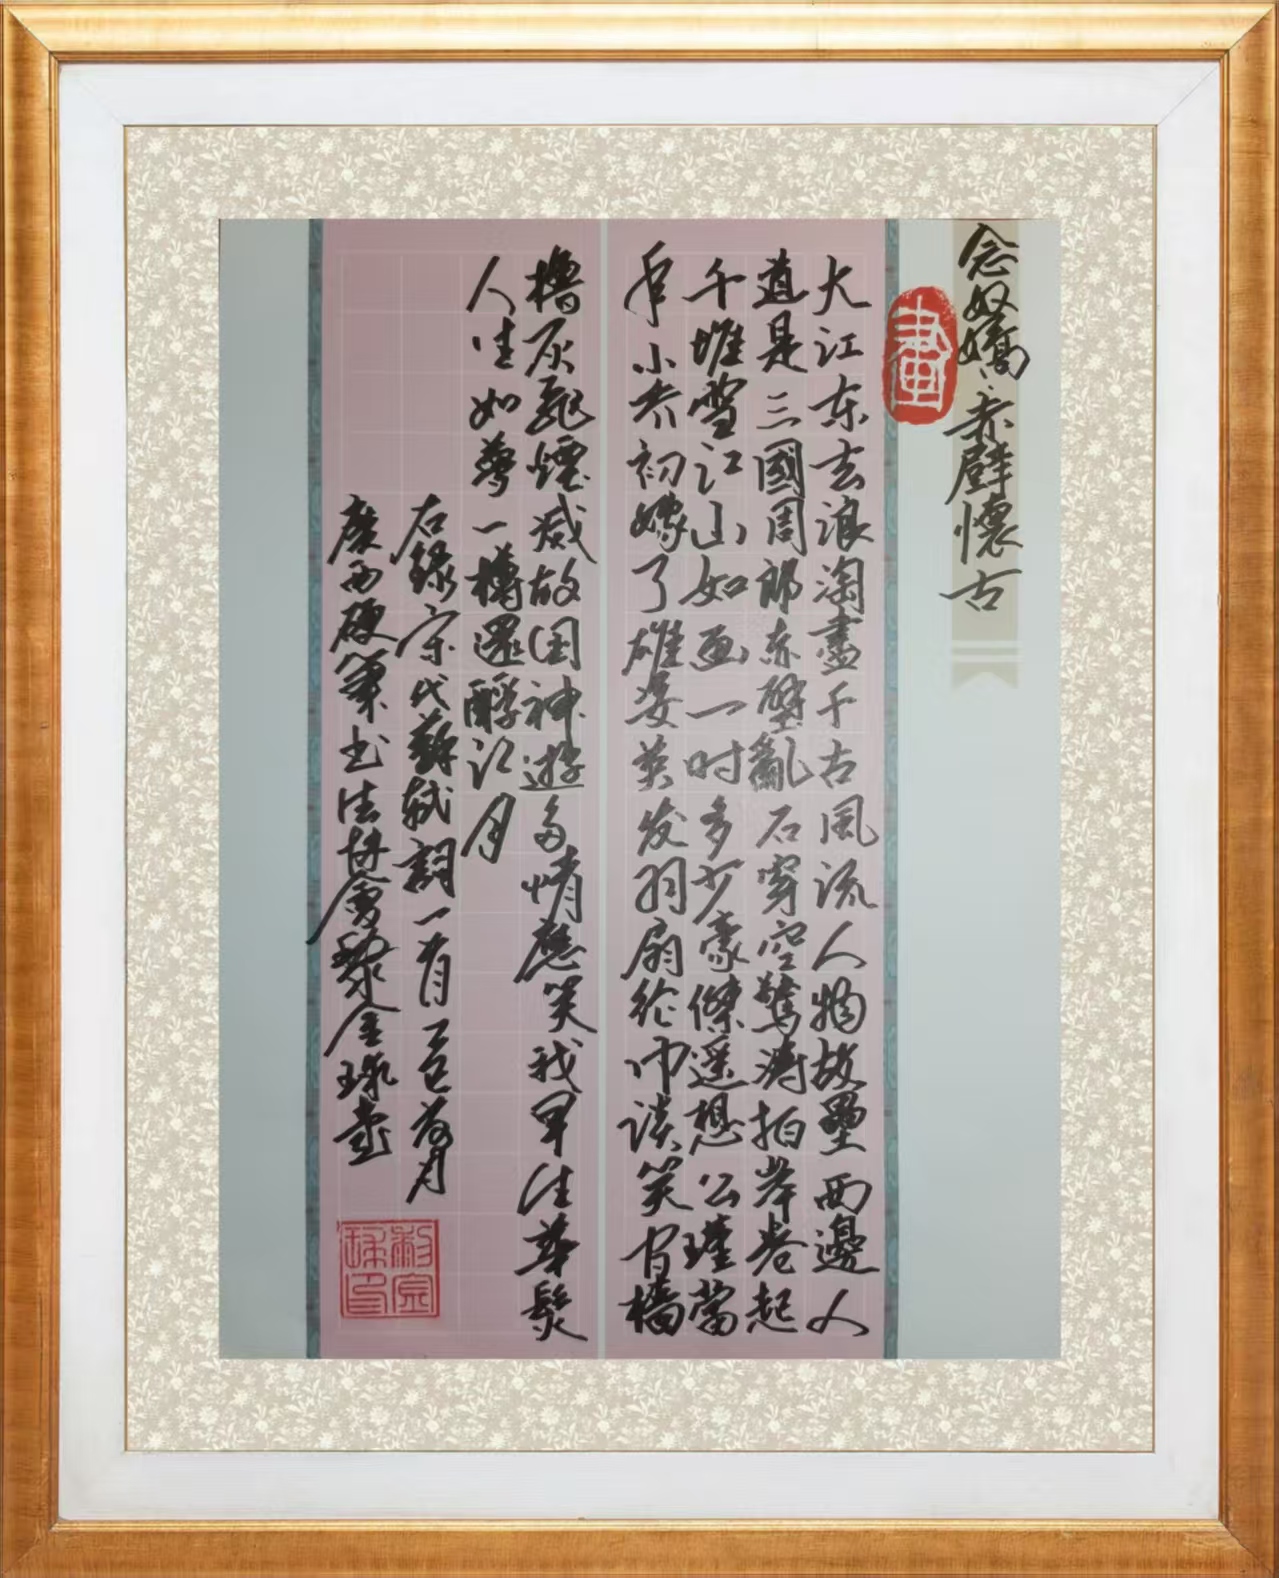 念奴嬌·赤壁懷古
畫
大江东去浪淘盡千古風流人物故壘西邊人
道是三國周郎赤壁亂石穿空驚濤拍岸卷起
千堆雪江山如画一时多少豪傑遥想公瑾當
年小乔初嫁了雄姿英发羽扇纶巾谈笑间檣
櫓灰飛煙滅故国神遊多情應笑我早生華髮
人生如夢一樽還酹江月
右錄宋代蘇軾詞一首
廣西硬筆书法协會黎金球書
黎金球印